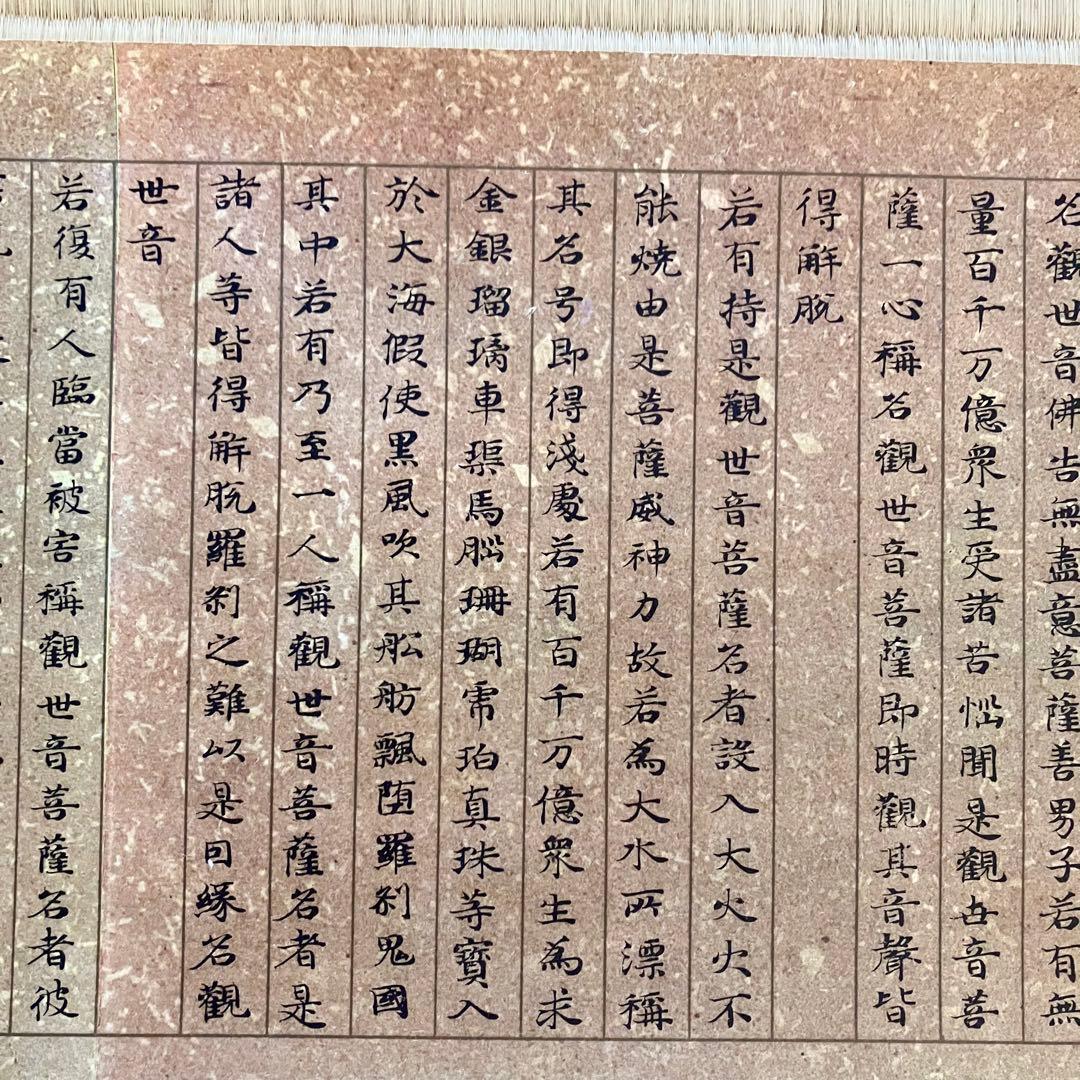 名觀世音佛告無盡意菩薩善男子若有無
量百千万億衆生受諸苦惱聞是觀世音菩
薩一心稱名觀世音菩薩即時觀其音聲皆
得解脫
若有持是觀世音菩薩名者設入大火火不
能燒由是菩薩威神力故若為大水所漂稱
其名号即得淺處若有百千万億衆生為求
金銀瑠璃車𤦲馬腦珊瑚虎珀真珠等寶入
於大海假使黒風吹其舩舫飄堕羅剎鬼國
其中若有乃至一人稱觀世音菩薩名者是
諸人等皆得解脫羅剎之難以是因緣名觀
世音
若復有人臨當被害稱觀世音菩薩名者彼